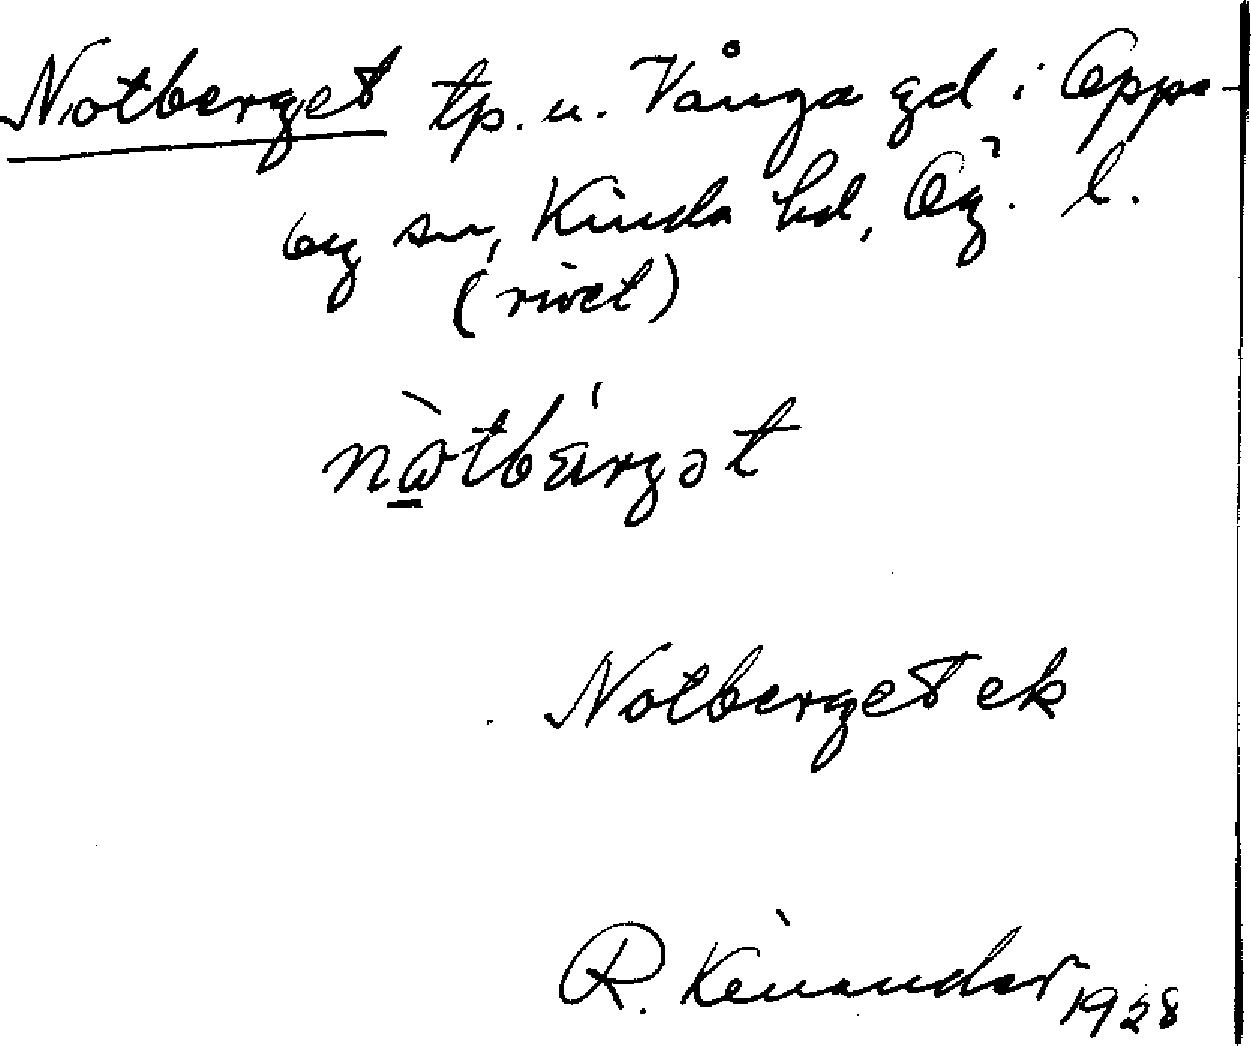 Notberget tp. u. Vånga gd i Oppe-
by sn, Kinda hd, Ög. l.
(rivet)
nὼ̲tbä́rgət
Notberget ek
R. Kenander 1928